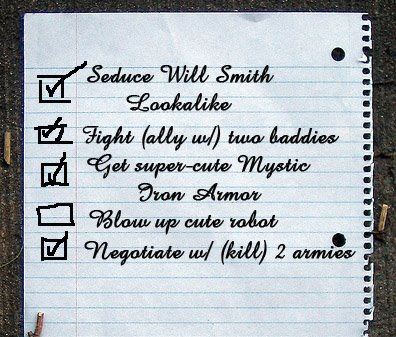 Seduce Will Smith
Lookalike
Fight (ally w/) two baddies
Get super-cute Mystic
Iron Armor
Blow up cute robot
Negotiate w/ (kill) 2 armies